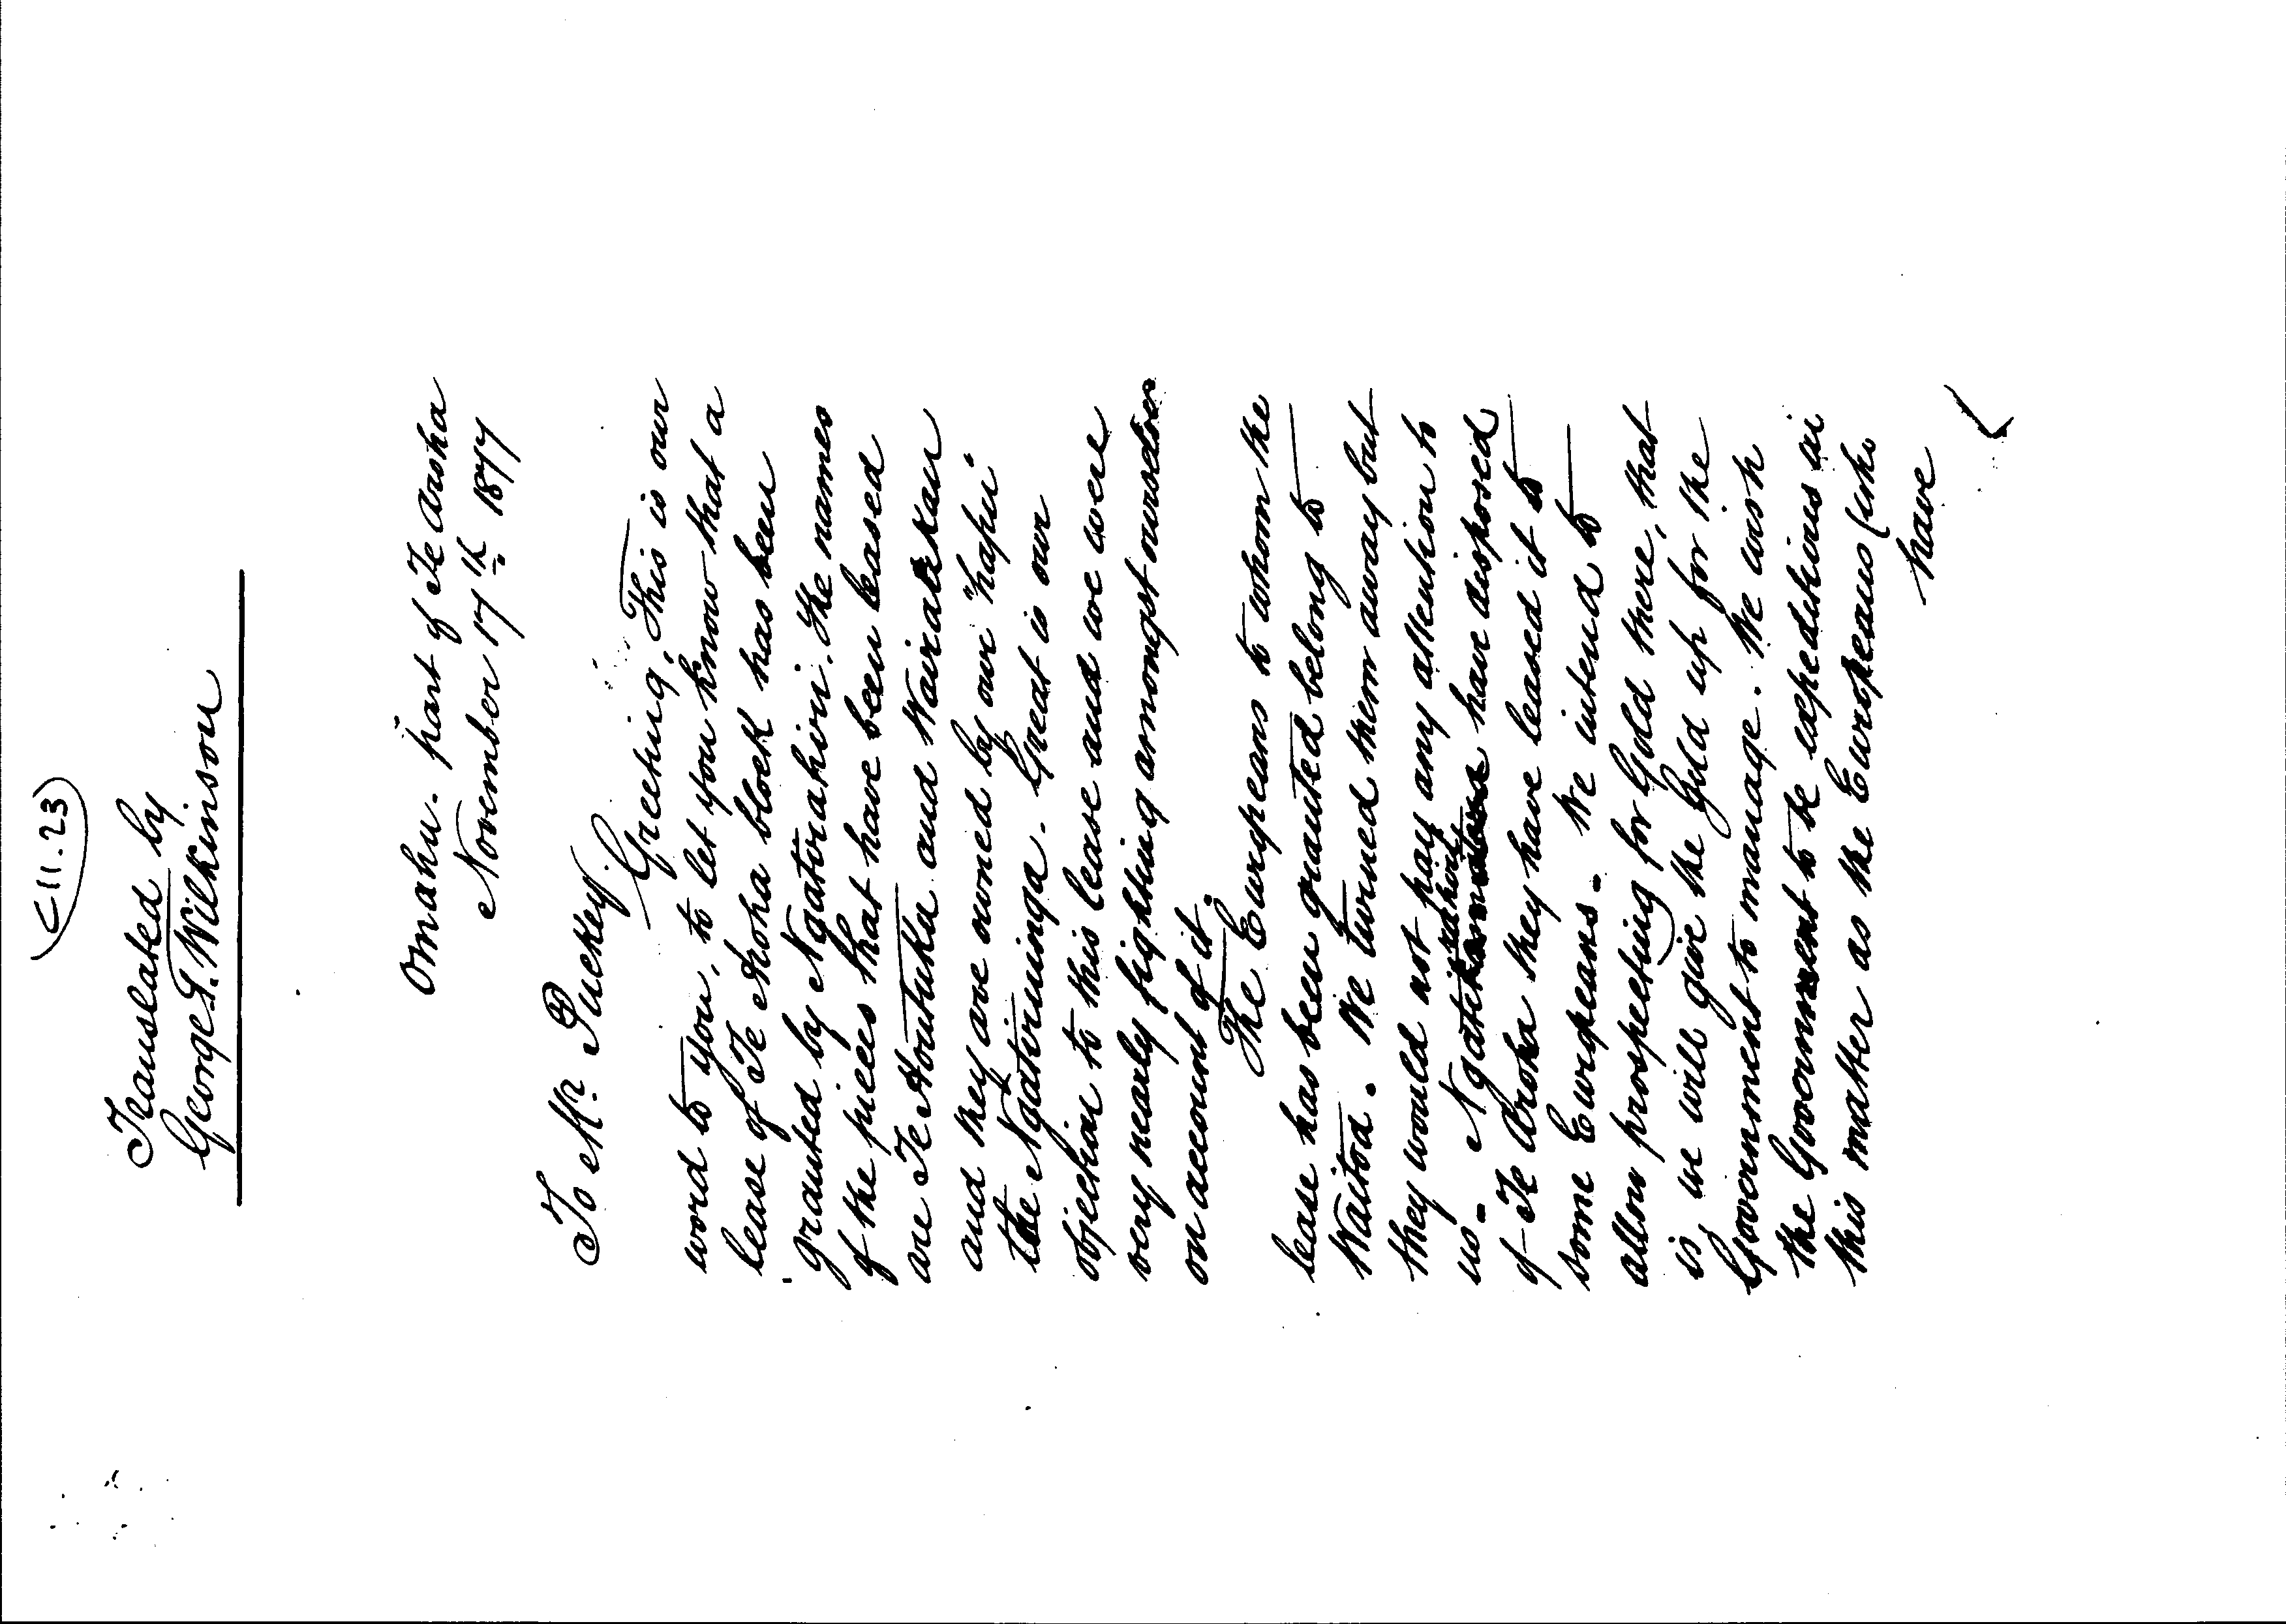 (C11.23)
Translated by
George T. Wilkinson
Omahu. part of Te Aroha
November 17th 1877
To Mr. Puckey
Greeting, This is our
word to you, to let you know that a
lease of Te Aroha block has been
granted by Ngatirahiri. The names
of the pieces that have been leased
are Te Houtuku and Wairakau
and they are owned by our "hapu"
the Ngatiruinga. Great is our
objection to this lease and we were
very nearly fighting amongst ourselves
on account of it.
The Europeans to whom the
lease has been granted belong to
Waitoa. We turned them away but
they would not pay any attention to
us. Ngatirahiri have disposed
of Te Aroha they have leased it to
some Europeans. We intend to
allow prospecting for Gold there, that
is, we will give the Gold up for the
Government to manage. We wish
the Government to be expeditious in
this matter as the Europeans (who
have